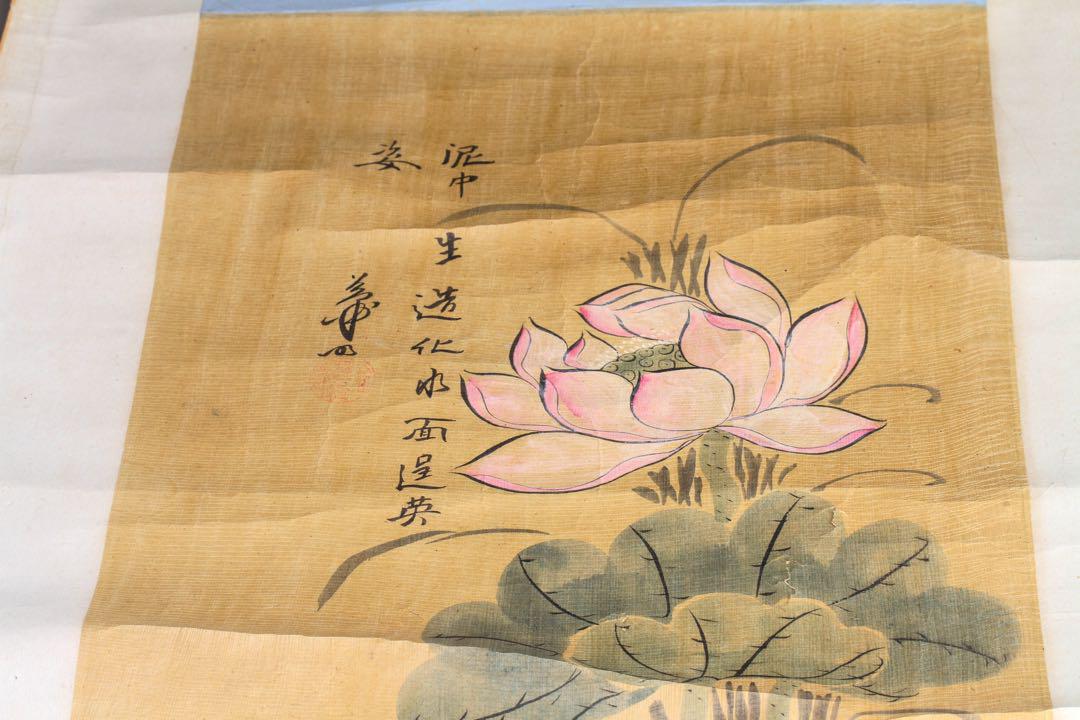 泥中生造化水面逞英
姿